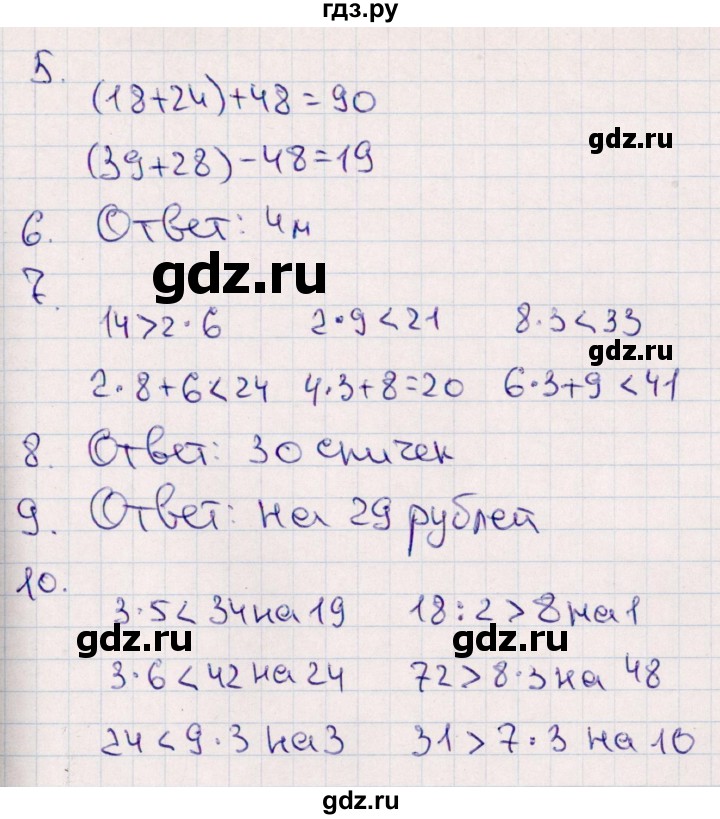 гдз.ру
5.
(18+24)+48=90
gdz.ru
(39+28)-48=19
6. Ответ: 4м
gdz.ru
7.
14>2·6 2·9<21 8·3<33
gdz.ru
2·8+6<24 4·3+8=20 6·3+9<41
8. Ответ: 30 спичек
9. Ответ: на 29 рублей
10.
3·5<34 на 19 18:2>8 на 1
gdz.ru gdz.ru
3·6<42 на 24 72>8·3 на 48
24<9·3 на 3 31>7·3 на 10
gdz.ru